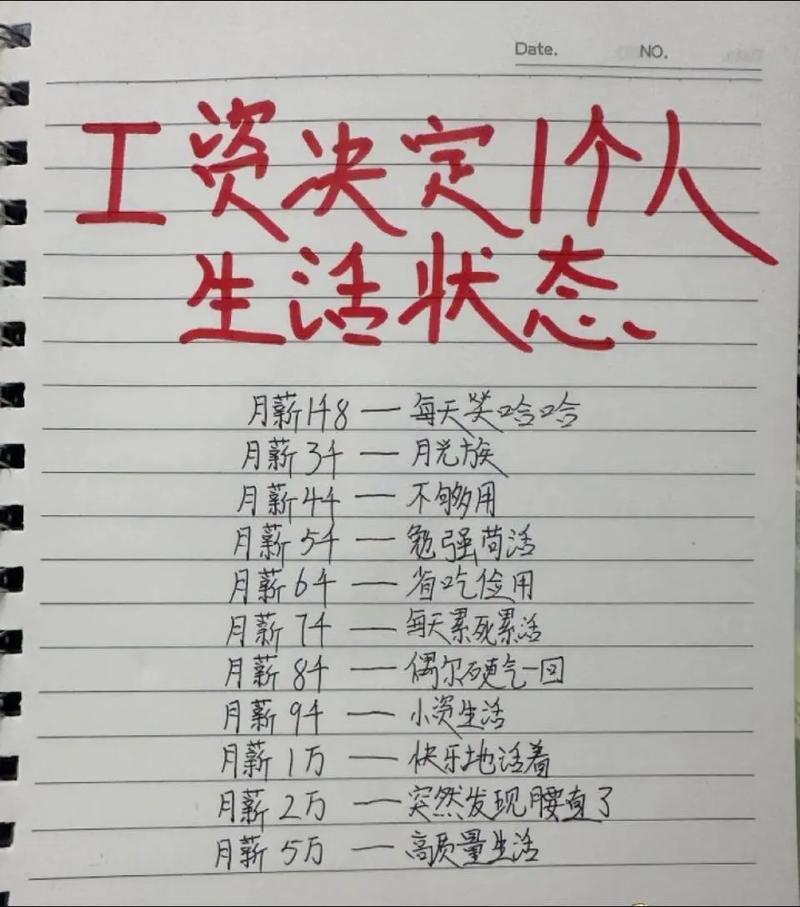 Date. NO.
工资决定1个人
生活状态
月薪1千8 — 每天笑哈哈
月薪3千 — 月光族
月薪4千 — 不够用
月薪5千 — 勉强苟活
月薪6千 — 省吃俭用
月薪7千 — 每天累死累活
月薪8千 — 偶尔硬气一回
月薪9千 — 小资生活
月薪1万 — 快乐地活着
月薪2万 — 突然发现腰直了
月薪5万 — 高质量生活